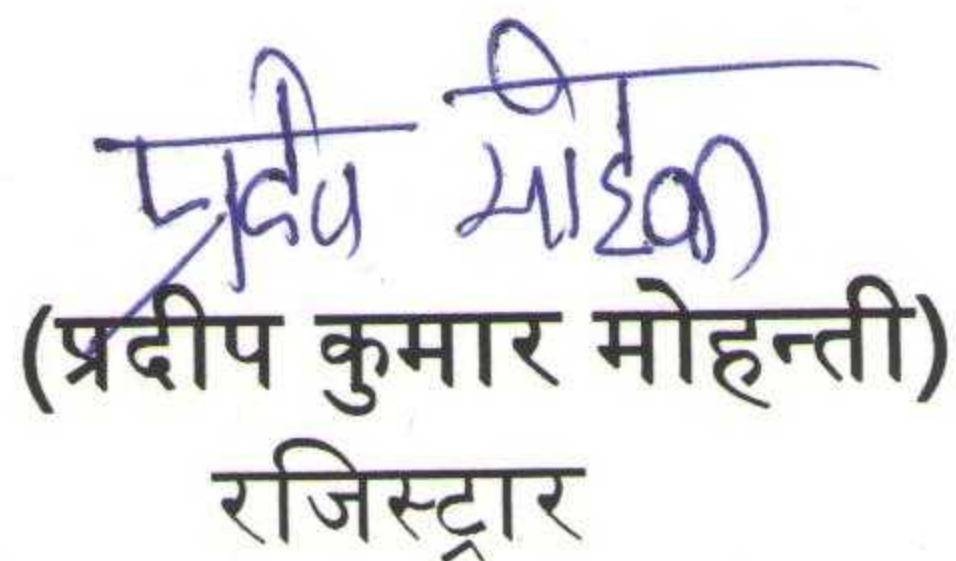 प्रदीप
(प्रदीप कुमार मोहन्ती)
रजिस्ट्रार